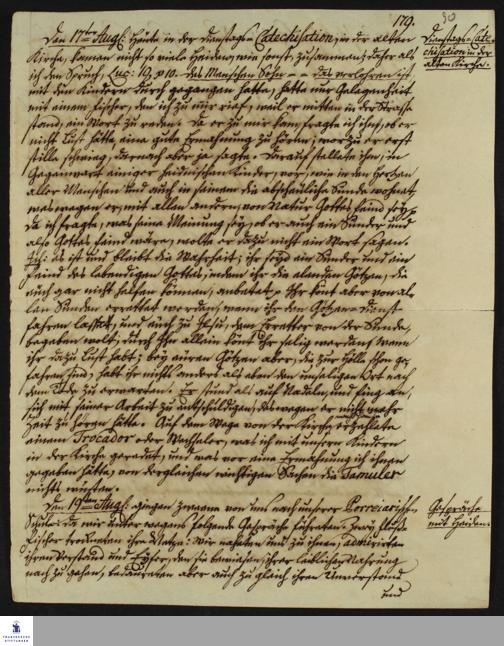 179.
Den 17ten Aug: Heute in der dienstags-Catechisation, in der alten
Kirche, kamen nicht so viele Heiden, wie sonst, zusammen; daher als
ich den Spruch, Luc: 19, v 10. des Menschen Sohn -- das verlohren ist
mit den Kindern durch gegangen hatte, hatte nur Gelegenheit
mit einem Fischer, den ich zu mir rief, weil er mitten in der Strasse
stand, ein Wort zu reden. Da er zu mir kam, fragte ich ihn, ob er
nicht Lust hätte eine gute Ermahnung zu hören, worzu er erst
stille schwieg, darnach aber ja sagte. Darauf stellete ihm, in
Gegenwart einiger heidnischen Kinder, vor, wie in dem Herzen
aller Menschen und auch in seinem die abscheuliche Sünde wohnet
weswegen er, mit allen andern, von Natur Gottes feind sey.
Da ich fragte, was seine Meinung sey, ob er auch ein Sünder und
also Gottes feind wäre, wolte er dazu nicht ein Wort sagen.
Ich: es ist und bleibt die Wahrheit, ihr seyd ein Sünder und ein
feind des lebendigen Gottes, indem ihr die elenden Götzen, die
euch gar nicht helfen können, anbetet. Ihr könt aber von al-
len Sünden errettet werden, wenn ihr den Götzen dienst
fahren lasset, und euch zu Jesu, dem Erretter von der Sünde,
begeben wolt; durch Ihn allein könt ihr selig werden, wenn
ihr dazu Lust habt; bey euren Götzen aber, die zur Hölle schon ge-
fahren sind, habt ihr nichts anders als eben den unseligen Ort nach
dem Tode zu erwarten. Er stund als auf Nadeln, und fing an,
sich mit seiner Arbeit zu entschuldigen, deswegen er nicht mehr
Zeit zu hören hätte. Auf dem Wege von der Kirche erzehlete
einem Trocador oder Wechseler, was ich mit unsern Kindern
in der Kirche geredet, und was vor eine Ermahnung ich ihnen
gegeben hätte, von dergleichen wichtigen Sachen die Tamuler
nichts wüsten.
Den 19ten Aug: giengen zweene von uns nach unserer Porreiarischen
Schule, da wir unter wegens folgende Gespräche führeten. Zwey
Fischer trockneten ihre Netze: Wir naheten uns zu ihnen, admirirten
ihren Verstand und Eyfer, den sie bewiesen, ihrer leiblichen Nahrung
nach zu gehen, bedaureten aber auch zu gleich ihren Unverstand
und
Dienstags-Cate-
chisation in der
alten Kirche.
Gespräche
mit Heiden.
FRANCKESCHE
STIFTUNGEN